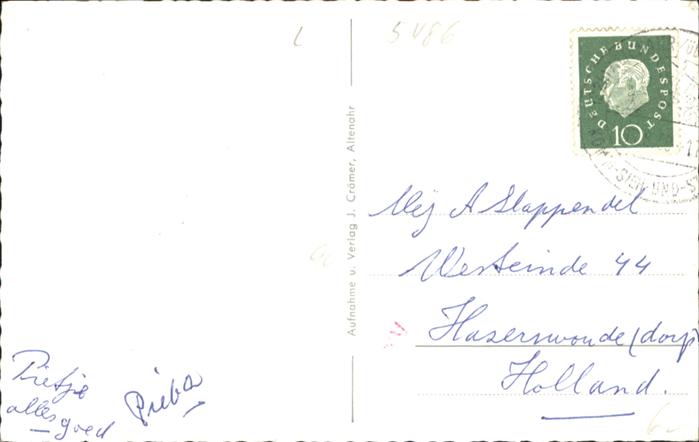 L
5 V86
DEUTSCHE BUNDESPOST
10
Aufnahme u. Verlag J. Crämer, Altenahr
Mej A Slappendel
Westeinde 44
Hazerswoude (dorp)
Holland.
Pietje
alles goed